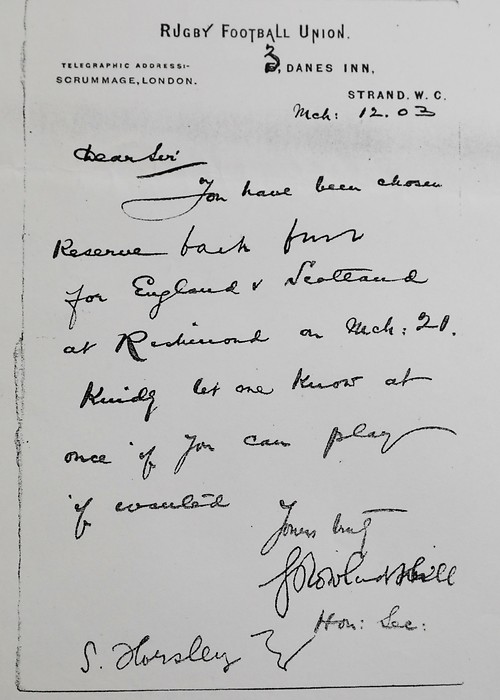 RUGBY FOOTBALL UNION.
TELEGRAPHIC ADDRESS:-
SCRUMMAGE, LONDON.
3, DANES INN,
STRAND. W. C.
Mch: 12. 03
Dear Sir
You have been chosen
Reserve back
for England v Scotland
at Richmond on Mch: 21.
Kindly let me know at
once if you can play
if wanted
Yours truly
G Rowland Hill
Hon: Sec:
S. Horsley